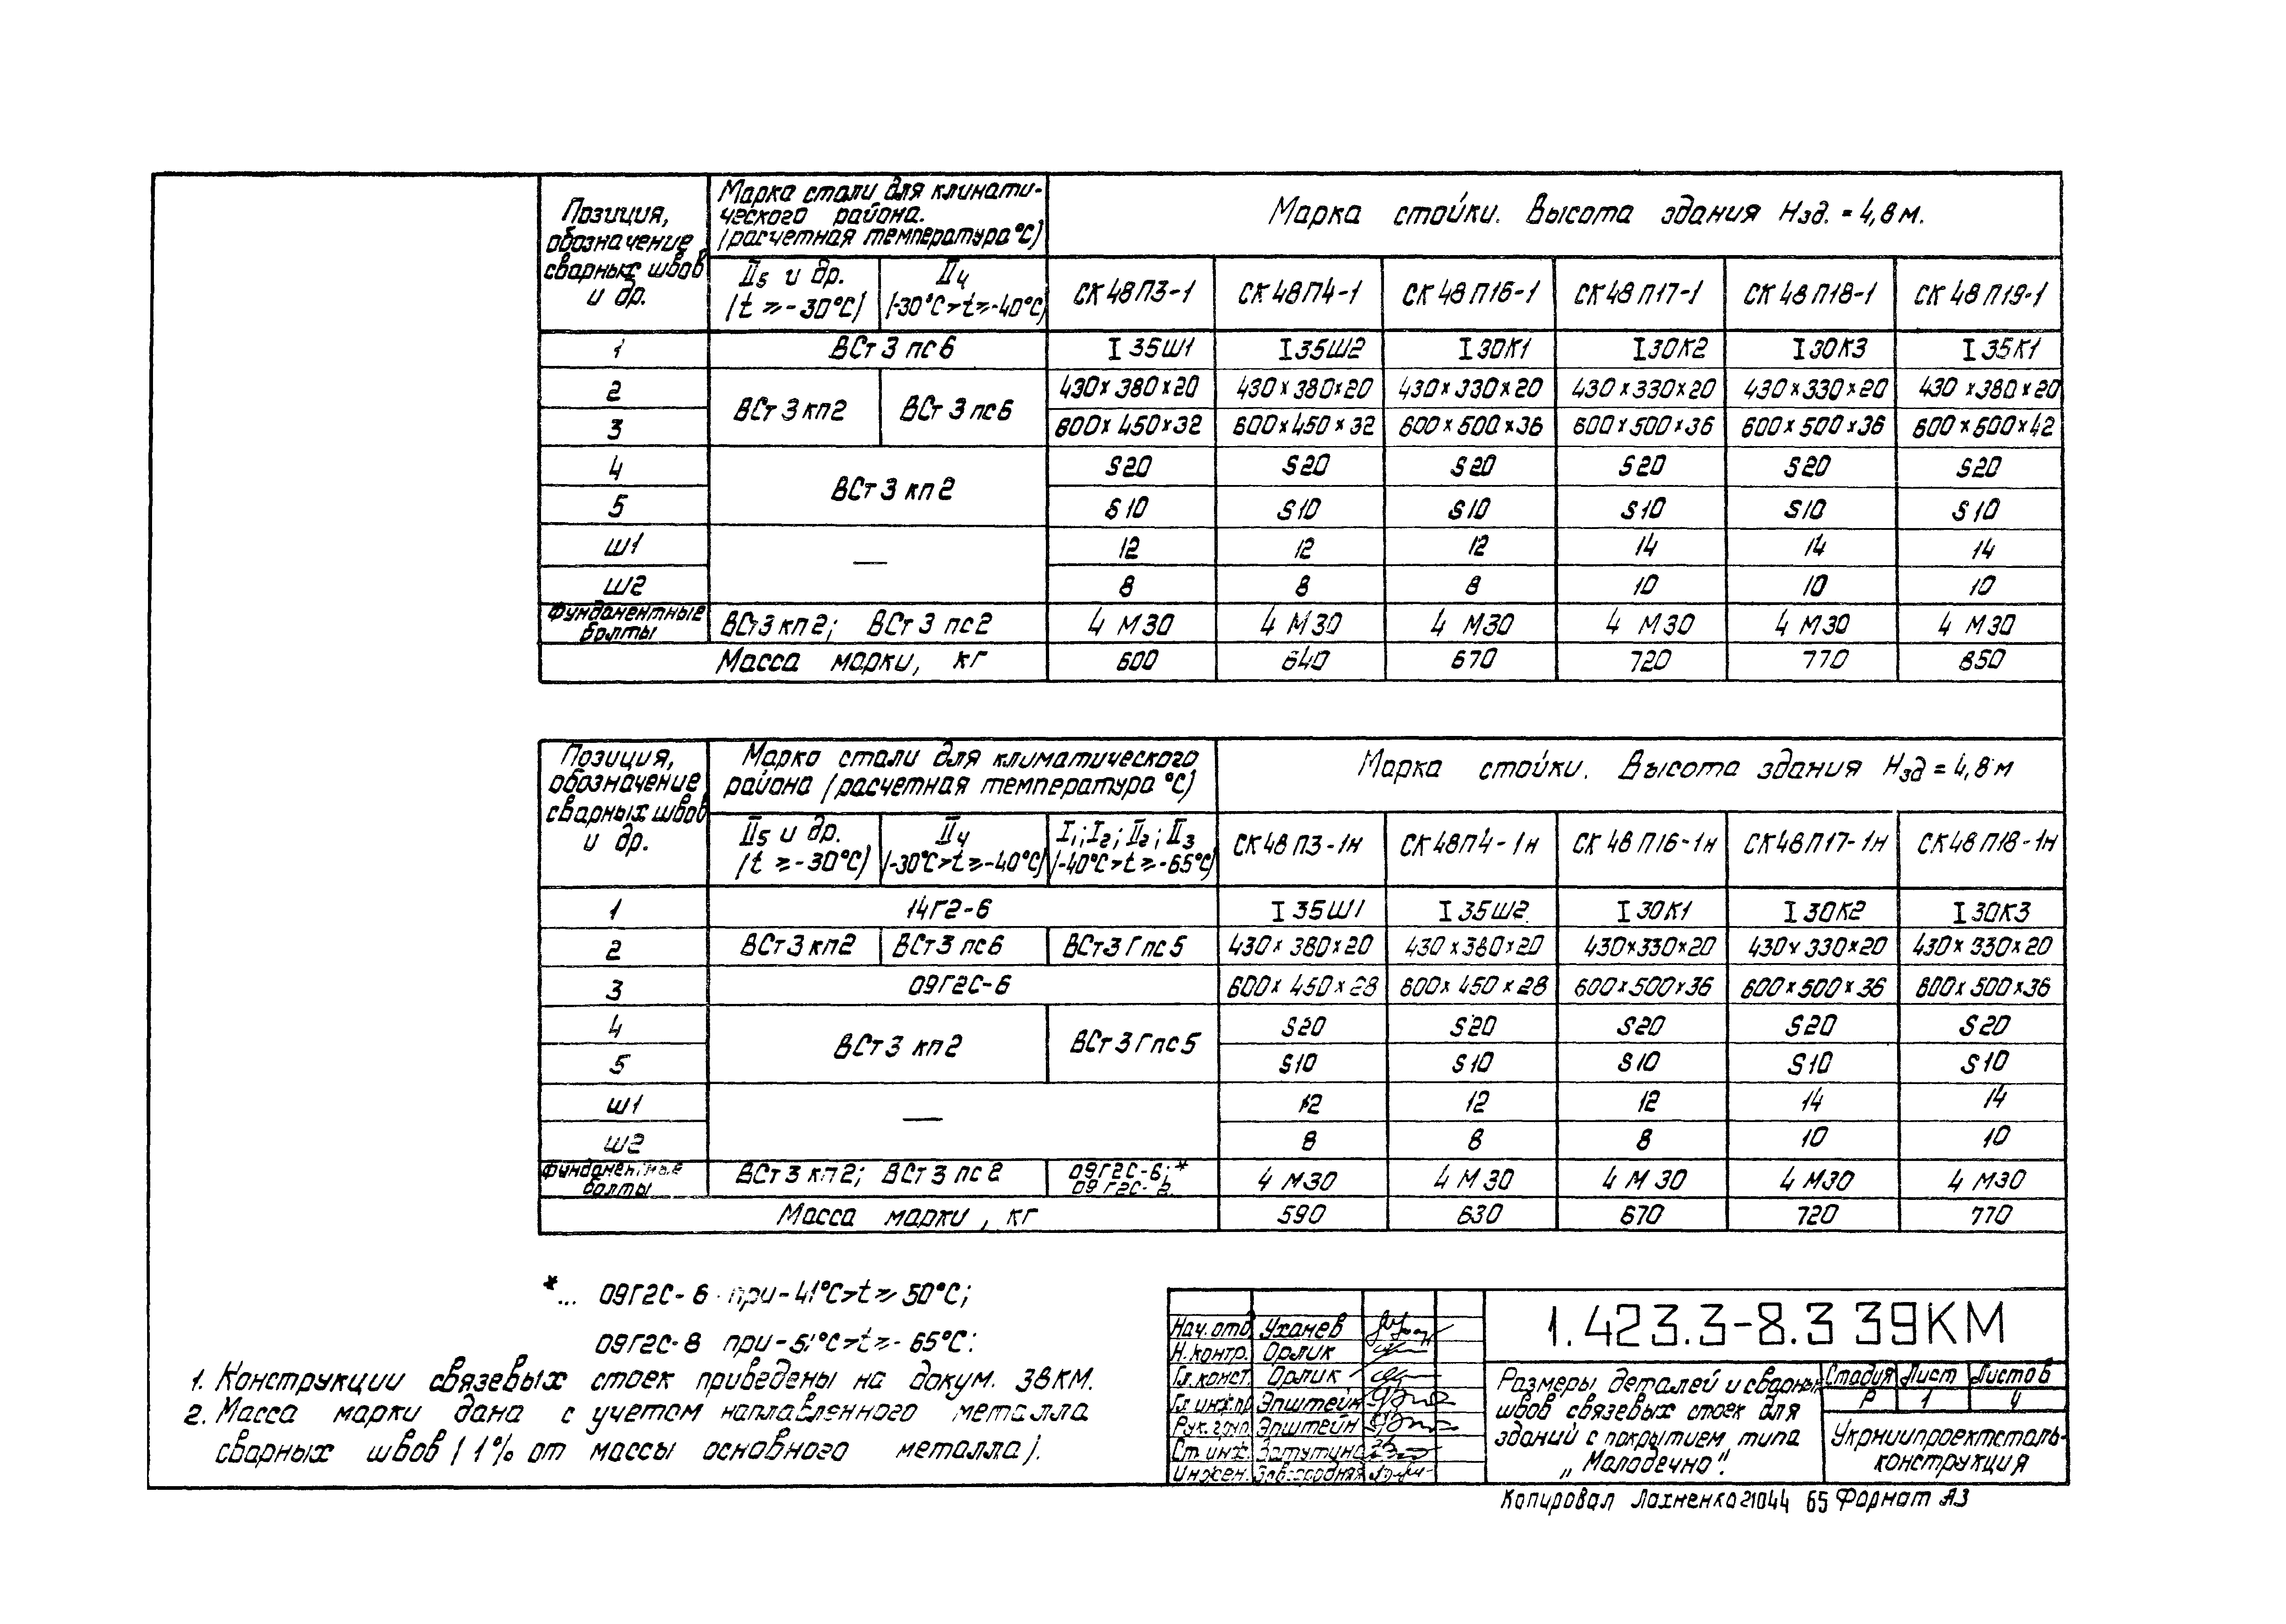 Позиция, обозначение сварных швов и др. | Марка стали для климатического района. (расчетная температура °С) | Марка стойки. Высота здания Нзд. = 4,8 м.
II5 и др. (t ≥ -30°С) | II4 (-30°С > t ≥ -40°С) | СК 48П3-1 | СК 48П4-1 | СК 48 П16-1 | СК 48 П17-1 | СК 48 П18-1 | СК 48 П19-1
1 | ВСт 3 пс 6 | I 35Ш1 | I 35Ш2 | I 30К1 | I 30К2 | I 30К3 | I 35К1
2 | ВСт 3 кп 2 | ВСт 3 пс 6 | 430×380×20 | 430×380×20 | 430×330×20 | 430×330×20 | 430×330×20 | 430×380×20
3 | 600×450×32 | 600×450×32 | 600×500×36 | 600×500×36 | 600×500×36 | 600×500×42
4 | ВСт 3 кп 2 | S20 | S20 | S20 | S20 | S20 | S20
5 | S10 | S10 | S10 | S10 | S10 | S10
Ш1 | — | 12 | 12 | 12 | 14 | 14 | 14
Ш2 | 8 | 8 | 8 | 10 | 10 | 10
Фундаментные болты | ВСт 3 кп 2; ВСт 3 пс 2 | 4 М30 | 4 М30 | 4 М30 | 4 М30 | 4 М30 | 4 М30
Масса марки, кг | 600 | 640 | 670 | 720 | 770 | 850
Позиция, обозначение сварных швов и др. | Марка стали для климатического района (расчетная температура °С) | Марка стойки. Высота здания Нзд = 4,8 м
II5 и др. (t ≥ -30°С) | II4 (-30°С > t ≥ -40°С) | I1; I2; II2; II3 (-40°С > t ≥ -65°С) | СК 48 П3-1н | СК 48П4-1н | СК 48 П16-1н | СК 48 П17-1н | СК 48 П18-1н
1 | 14Г2-6 | I 35Ш1 | I 35Ш2 | I 30К1 | I 30К2 | I 30К3
2 | ВСт 3 кп 2 | ВСт 3 пс 6 | ВСт 3 Гпс 5 | 430×380×20 | 430×380×20 | 430×330×20 | 430×330×20 | 430×330×20
3 | 09Г2С-6 | 600×450×28 | 600×450×28 | 600×500×36 | 600×500×36 | 600×500×36
4 | ВСт 3 кп 2 | ВСт 3 Гпс 5 | S20 | S20 | S20 | S20 | S20
5 | S10 | S10 | S10 | S10 | S10
Ш1 | — | 12 | 12 | 12 | 14 | 14
Ш2 | 8 | 8 | 8 | 10 | 10
Фундаментные болты | ВСт 3 кп 2; ВСт 3 пс 2 | 09Г2С-6;* 09Г2С- | 4 М30 | 4 М30 | 4 М30 | 4 М30 | 4 М30
Масса марки, кг | 590 | 630 | 670 | 720 | 770
*... 09Г2С-6 при -41°С > t ≥ 50°С;
09Г2С-8 при -51°С > t ≥ -65°С:
1. Конструкции связевых стоек приведены на докум. 38КМ.
2. Масса марки дана с учетом наплавленного металла
сварных швов (1% от массы основного металла).
Нач. отд. Уханев
Н. контр. Орлик
Гл. конст. Орлик
Гл. инж. пр. Эпштейн
Рук. груп. Эпштейн
Ст. инж.
Инжен. Завгородняя
1.423.3-8.3 39КМ
Размеры деталей и сварных
швов связевых стоек для
зданий с покрытием типа
„Молодечно".
Стадия Лист Листов
Р 1 4
Укрниипроектсталь-
конструкция
Копировал Лахненко 21044 65 Формат А3